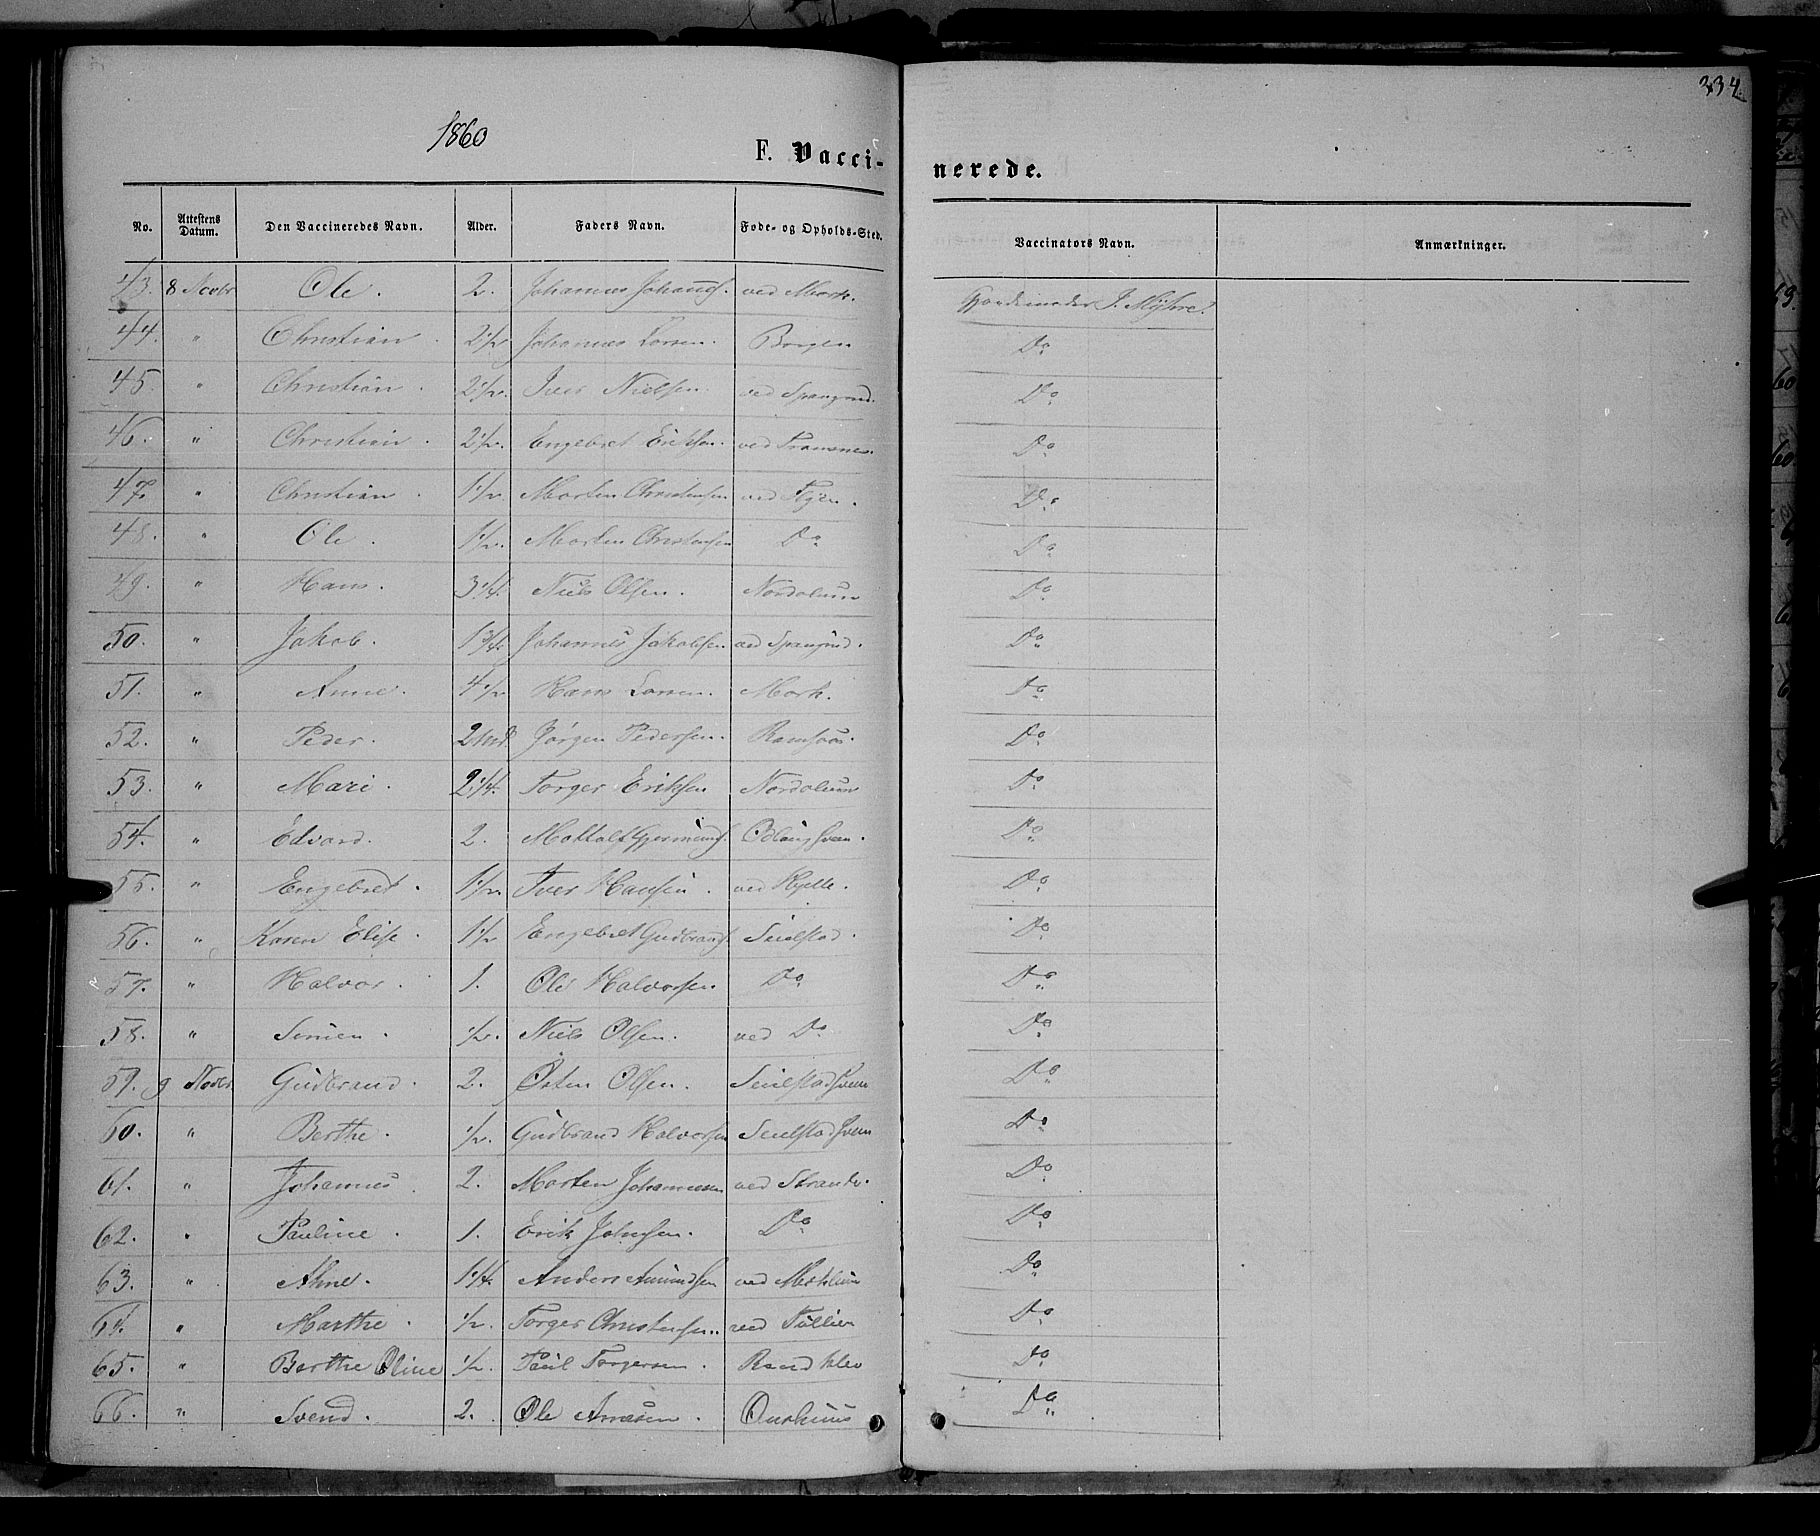 334.
1860
F. Vacci-
nerede.
No. Attestens Datum. Den Vaccineredes Navn. Alder. Faders Navn. Føde- og Opholds-Sted. Vaccinators Navn. Anmærkninger.
43. 8 Novbr Ole. 2. Johannes ved Mork. J. Myhre.
44. " Christian. 2 1/2 Johannes Larsen. Borgen Do
45. " Christian. 2 1/2. Iver Nielsen. ved Do
46. " Christian. 2 1/2. Engebret Eriksen. ved Do
47. " Christian. 1 1/2. Morten Christensen ved Do
48. " Ole. 1 1/2. Morten Christensen Do Do
49. " Hans. 3 1/4. Niels Olsen. Nordolum Do
50. " Jakob. 1 3/4. Johannes Jakobsen ved Do
51. " Anne. 4 1/2 Hans Larsen. Mork. Do
52. " Peder. 2 Md Jørgen Pedersen. Do
53. " Mari. 2 1/4. Torger Eriksen Nordolum Do
54. " Edvard. 2. Do
55. " Engebret. 1 1/2. Iver Hansen. ved Do
56. " Karen Elise. 1 1/2 Engebret Gudbrands. Seielstad. Do
57. " Halvor. 1. Ole Halvorsen Do Do
58. " Simen. 1/2. Niels Olsen. ved Do Do
59. 9 Novbr Gudbrand. 2. Østen Olsen. Seielstadhvern Do
60. " Berthe. 1/2. Gudbrand Halvorsen Seielstadhvern Do
61. " Johannes. 2. Morten Johannesen ved Strande. Do
62. " Pauline. 1. Erik Johnsen. Do Do
63. " Ahne. 1 1/4. Anders Amundsen ved Do
64. " Marthe. 1/2. Torger Christensen. ved Do
65. " Berthe Oline 1/2. Paul Torgersen. Randklev Do
66. " Svend. 2. Ole Do